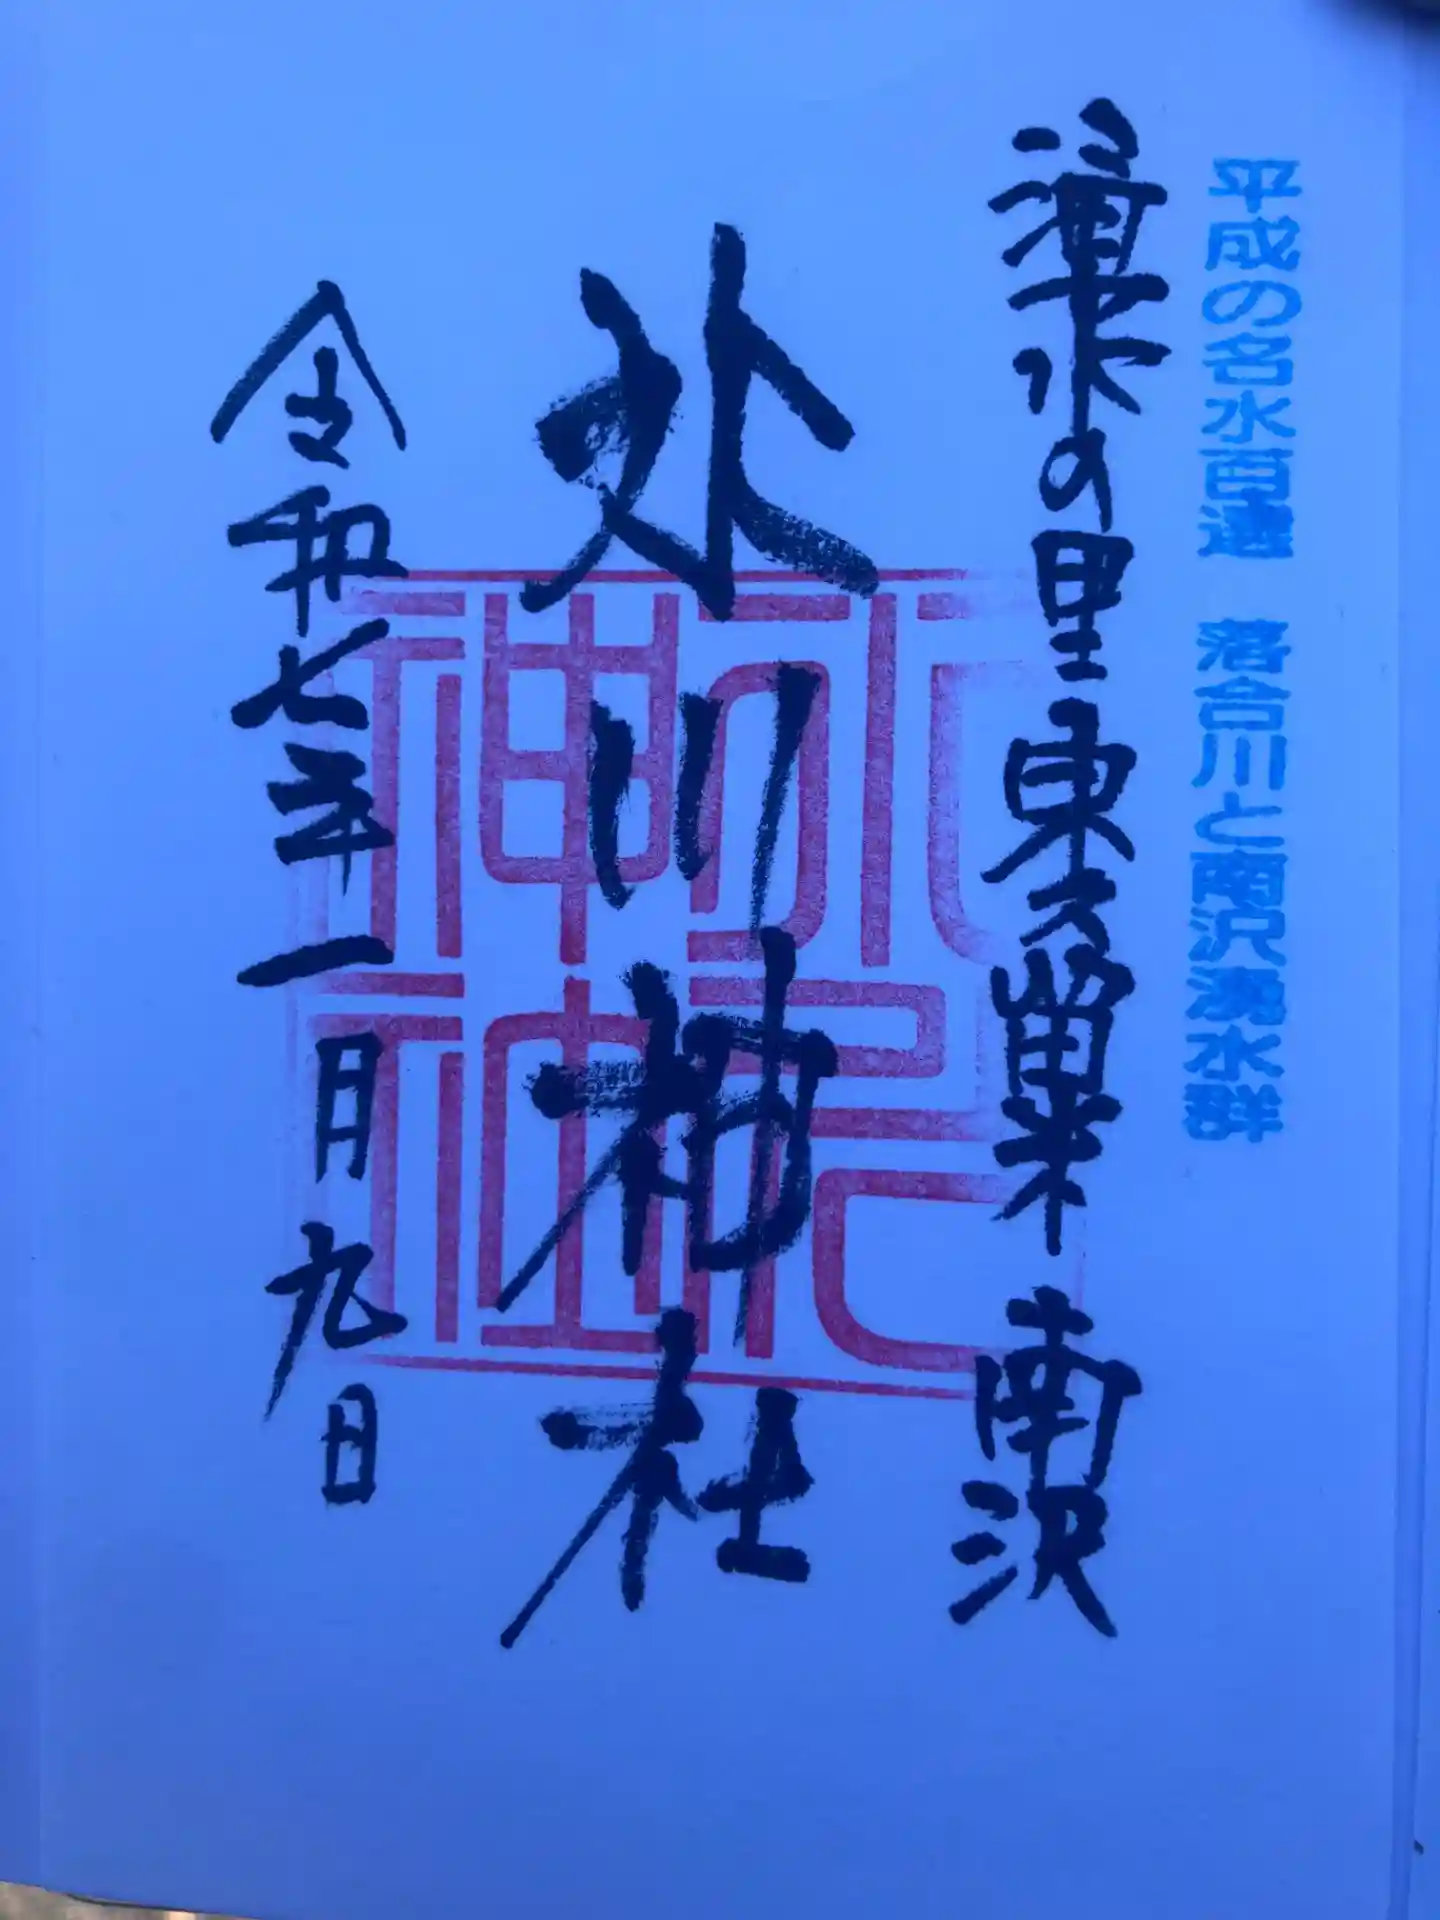 平成の名水百選 落合川と南沢湧水群
湧水の里 東久留米 南沢
氷川神社
令和七年一月九日